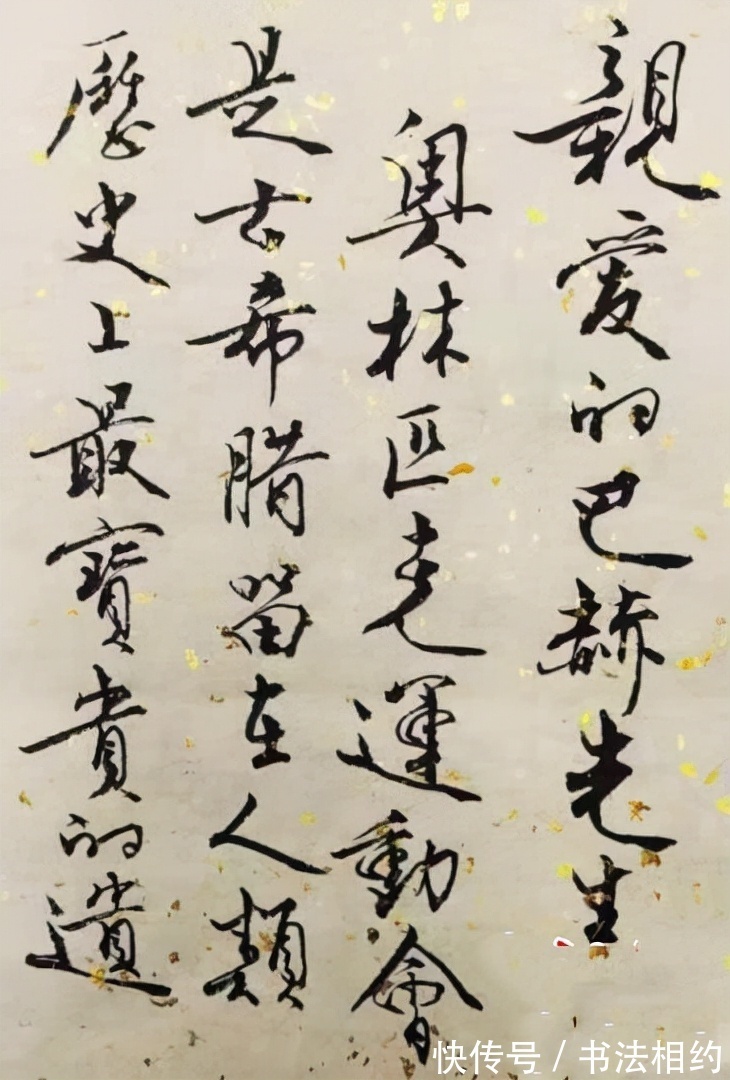 親愛的巴赫先生
奧林匹克運動會
是古希腊留在人類
歷史上最寶貴的遺
快传号 / 书法相约